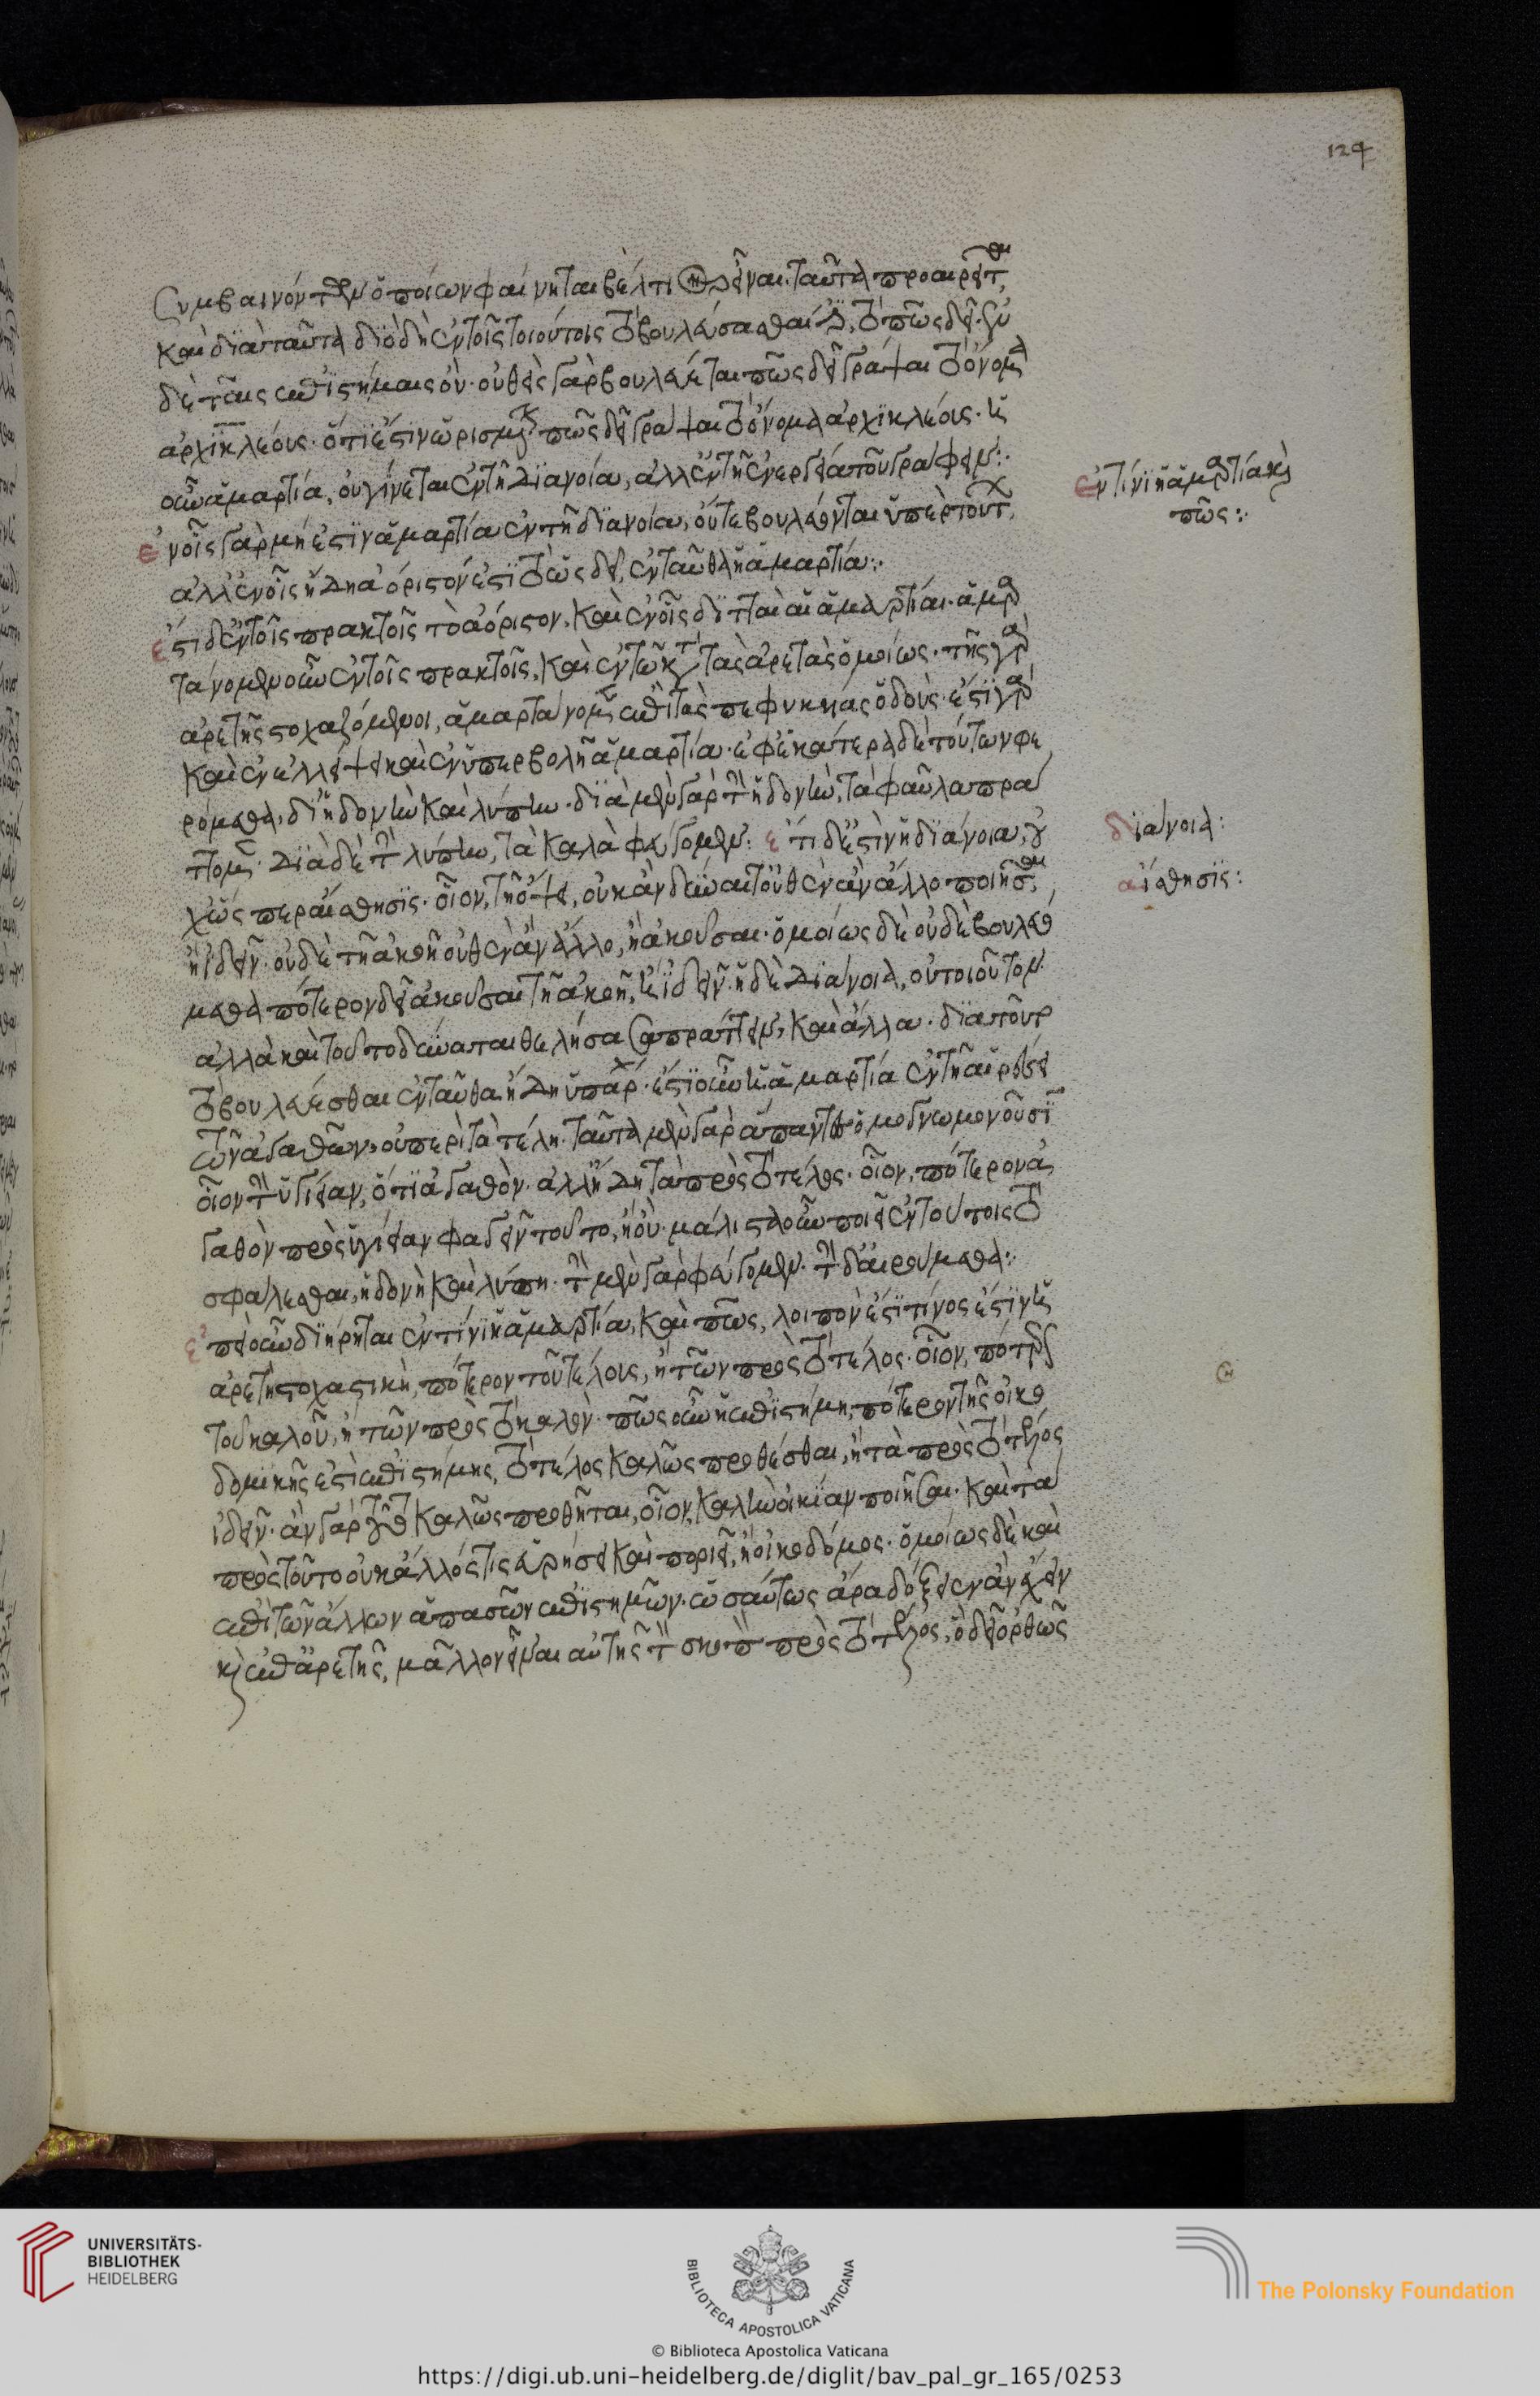 124
συμβαινόντων ὁποίων φαίνηται βέλτιον εἶναι. ταῦτα προαιρεῖσθαι,
καὶ διὰ ταῦτα διὸ δὴ ἐν τοῖς τοιούτοις τὸ βουλεύσασθαί ἐστι, τὸ πῶς δεῖ. ἐν
δὲ ταῖς ἐπιστήμαις οὐ. οὐθεὶς γὰρ βουλεύεται πῶς δεῖ γράψαι τὸ ὄνομα
ἀρχικλέους. ὅτι ἐστὶν ὡρισμένον πῶς δεῖ γράψαι τὸ ὄνομα ἀρχικλέους. ἡ
οὖν ἁμαρτία, οὐ γίνεται ἐν τῇ διανοία, ἀλλ ἐν τῇ ἐνεργεία τοῦ γράφειν:·
ἐν τίνι ἡ ἁμαρτία καὶ
πῶς:·
ἐν οἷς γὰρ μή ἐστιν ἁμαρτία ἐν τῇ διανοία, οὔτε βουλεύονται ὑπὲρ τούτων,
ἀλλ ἐν οἷς ἤδη ἀόριστόν ἐστι τὸ ὡς δεῖ, ἐνταῦθα ἡ ἁμαρτία:·
ἔστι δ ἐν τοῖς πρακτοῖς τὸ ἀόριστον, καὶ ἐν οἷς διτταὶ αἱ ἁμαρτίαι. ἁμαρ
τάνομεν οὖν ἐν τοῖς πρακτοῖς, καὶ ἐν τοῖς κατὰ τὰς ἀρετὰς ὁμοίως. τῆς γὰρ
ἀρετῆς στοχαζόμενοι, ἁμαρτάνομεν ἐπὶ τὰς πεφυκυίας ὁδούς. ἔστι γὰρ
καὶ ἐν ἐλλείψει καὶ ἐν ὑπερβολῇ ἁμαρτία. ἐφ ἑκάτερα δὲ τούτων φε
ρόμεθα, δι ἡδονὴν καὶ λύπην. διὰ μὲν γὰρ τὴν ἡδονὴν, τὰ φαῦλα πρά
ττομεν. διὰ δὲ τὴν λύπην, τὰ καλὰ φεύγομεν: ἔτι δ ἐστὶν ἡ διάνοια, οὐ
διάνοια:
χ ὥσπερ αἴσθησις. οἷον, τῇ ὄψει, οὐκ ἂν δύναιτο οὐθὲν ἂν ἄλλο ποιῆσαι,
αἴσθησις:
ἢ ἰδεῖν. οὐδὲ τῇ ἀκοῇ οὐθὲν ἂν ἄλλο, ἢ ἀκοῦσαι. ὁμοίως δὲ οὐδὲ βουλευό
μεθα πότερον δεῖ ἀκοῦσαι τῇ ἀκοῇ, ἢ ἰδεῖν. ἡ δὲ διάνοια, οὐ τοιοῦτον.
ἀλλὰ καὶ τοῦτο δύναται θελήσασα πράττειν, καὶ ἄλλα. διὰ τοῦτο
τὸ βουλεύεσθαι ἐνταῦθα ἤδη ὑπάρχει. ἔστι οὖν ἡ ἁμαρτία ἐν τῇ αἱρέσει
τῶν ἀγαθῶν, οὐ περὶ τὰ τέλη. ταῦτα μὲν γὰρ ἅπαντες ὁμογνωμονοῦσι
οἷον τὴν ὑγίειαν, ὅτι ἀγαθὸν. ἀλλ ἤδη τὰ πρὸς τὸ τέλος. οἷον, πότερον ἀ
γαθὸν πρὸς ὑγίειαν φαγεῖν τοῦτο, ἢ οὐ. μάλιστα οὖν ποιεῖ ἐν τούτοις τὸ
σφάλλεσθαι, ἡδονὴ καὶ λύπη. τὴν μὲν γὰρ φεύγομεν. τὴν δ αἱρούμεθα:·
ἐπεὶ οὖν διῄρηται ἐν τίνι ἡ ἁμαρτία, καὶ πῶς, λοιπὸν ἐστὶ τίνος ἐστὶν ἡ
ἀρετὴ στοχαστικὴ, πότερον τοῦ τέλους, ἢ τῶν πρὸς τὸ τέλος. οἷον, πότερον
τοῦ καλοῦ, ἢ τῶν πρὸς τὸ καλὸν. πῶς οὖν ἡ ἐπιστήμη, πότερον τῆς οἰκο
δομικῆς ἐστὶ ἐπιστήμης, τὸ τέλος καλῶς προθέσθαι, ἢ τὰ πρὸς τὸ τέλος
ἰδεῖν. ἂν γὰρ τοῦτο καλῶς προθῆται, οἷον, καλὴν οἰκίαν ποιῆσαι. καὶ τὰ
πρὸς τοῦτο οὐκ ἄλλός τις εὑρήσει καὶ ποριεῖ, ἢ οἰκοδόμος. ὁμοίως δὲ καὶ
ἐπὶ τῶν ἄλλων ἁπασῶν ἐπιστημῶν. ὡσαύτως ἄρα δόξειεν ἂν ἔχειν
καὶ ἐπ ἀρετῆς, μᾶλλον εἶναι αὐτῆς τὸν σκοπὸν πρὸς τὸ τέλος, ὃ δεῖ ὀρθῶς
UNIVERSITÄTS-
BIBLIOTHEK
HEIDELBERG
BIBLIOTECA APOSTOLICA VATICANA
The Polonsky Foundation
© Biblioteca Apostolica Vaticana
https://digi.ub.uni-heidelberg.de/diglit/bav_pal_gr_165/0253